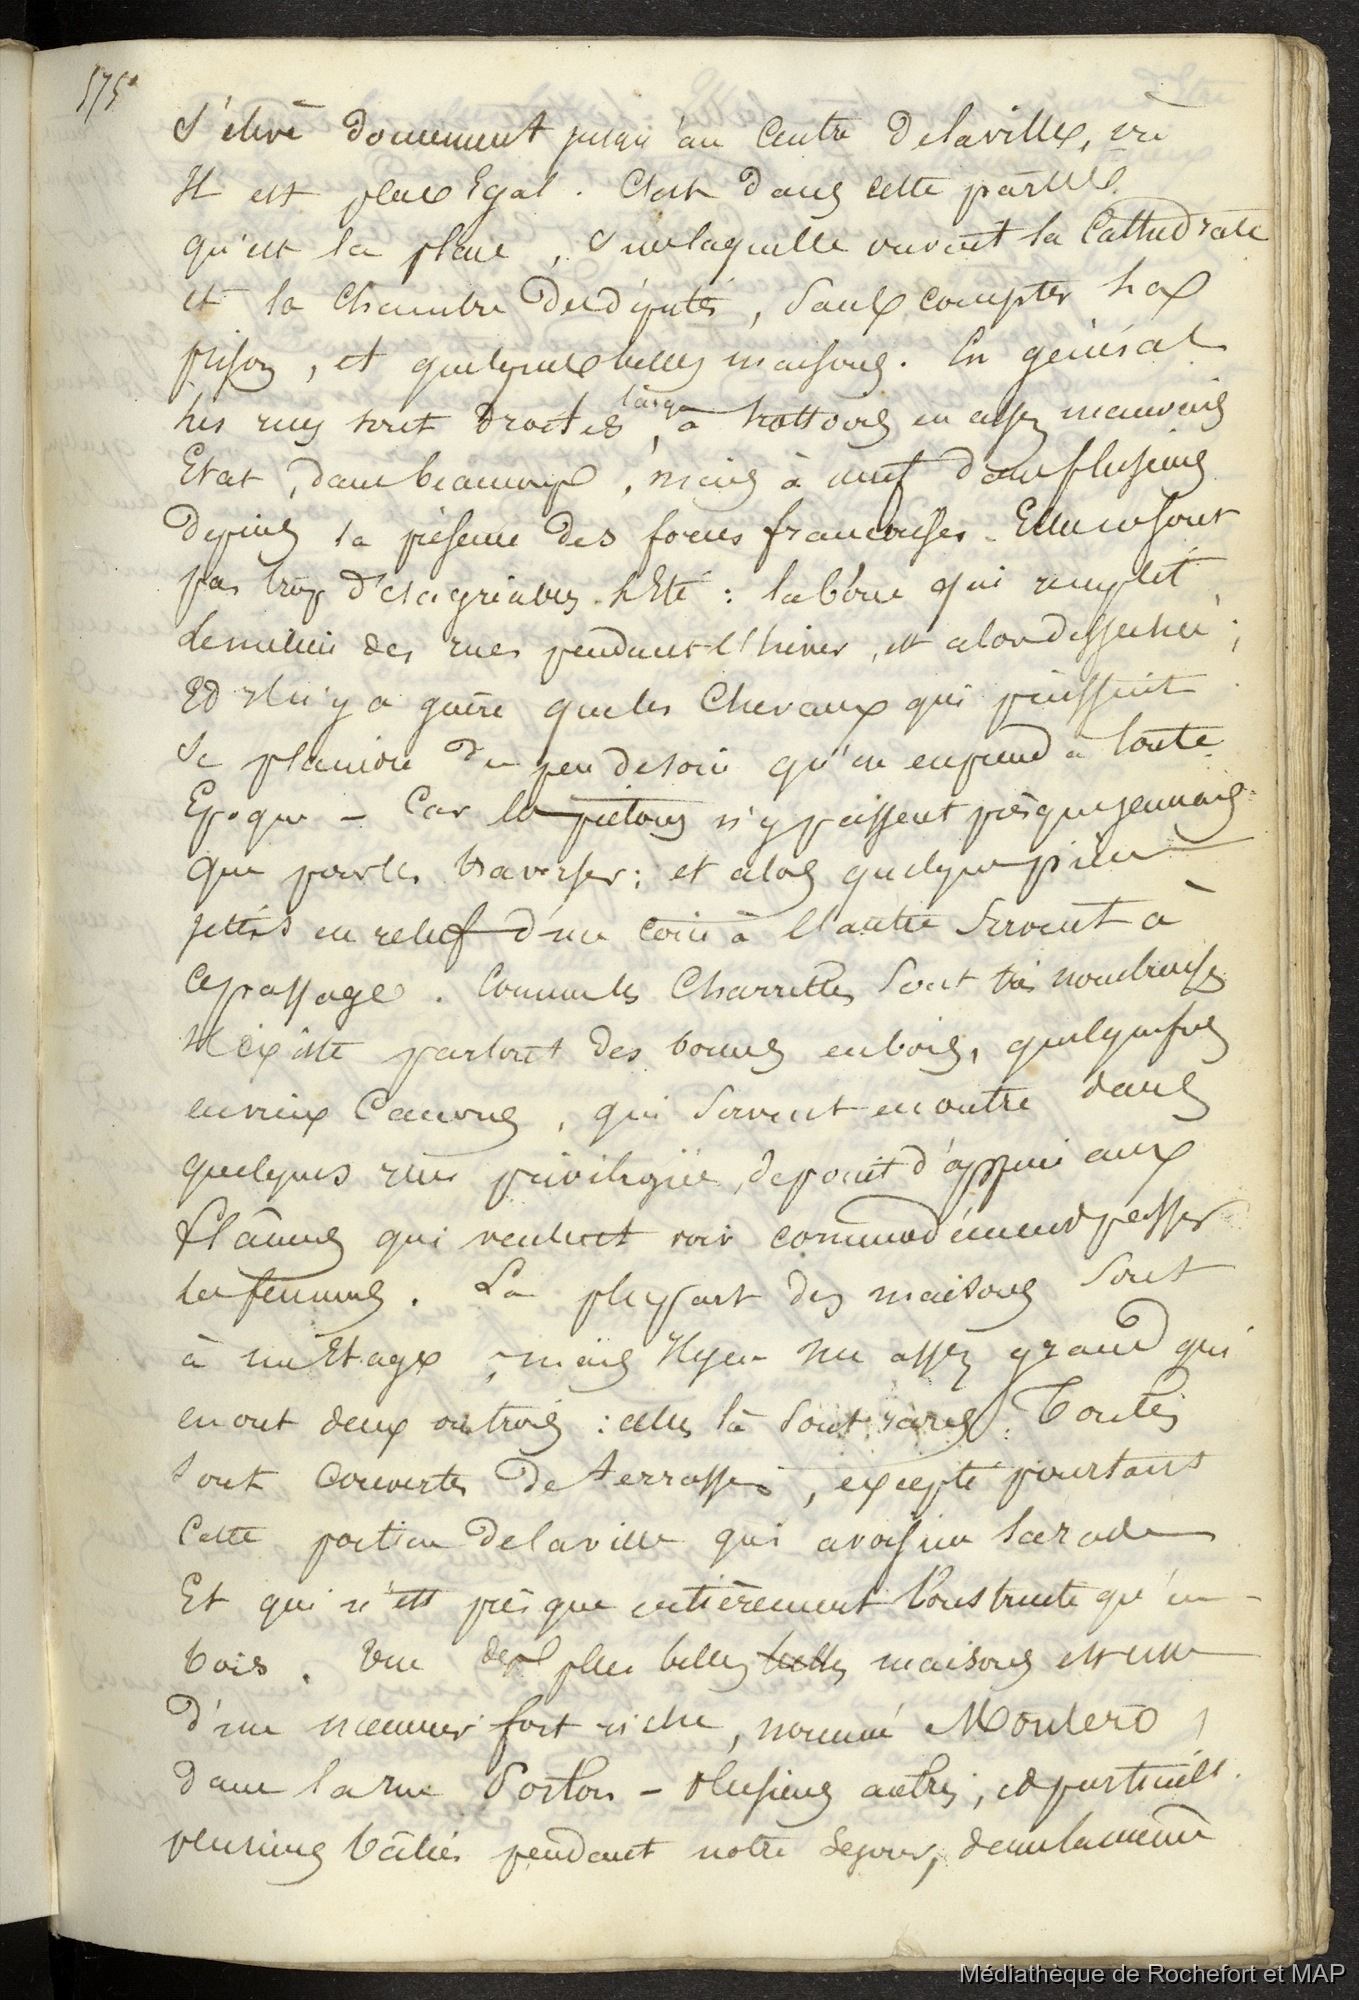 575
S'élève doucement jusqu'au Centre de la ville, où
Il est plus Egal. C'est dans cette partie
qu'est la place, sur laquelle ouvrent la Cathedrale
et la Chambre des députés, sans compter la
prison, et quelques belles maisons. En général
les rues sont droites, large, à trottoirs en assez mauvais
Etat, dans beaucoup, mais à neuf dans plusieurs
depuis la présence des forces françaises. Elles ne sont
pas trop désagréables l'Eté : la boue qui remplit
le milieu des rues pendant l'hiver, est alors desséchée ;
Et Il n'y a guère que les Chevaux qui puissent
se plaindre du peu de soin qu'on en prend à toute
Epoque – Car les piétons n'y passent presque jamais
que pour les traverser ; et alors quelques pierres
jettées en relief d'un coin à l'autre servent à
ce passage. Comme les Charrettes sont très nombreuses
Il existe partout des bornes en bois, quelquefois
en vieux Canons, qui servent en outre dans
quelques rues privilégiées, de point d'appui aux
flâneurs qui veulent voir commodément passer
les femmes. La pluspart des maisons sont
à un Etage, mais Il y en a assez grand qui
en ont deux ou trois : celles là sont rares. Toutes
sont couvertes de terrasses, excepté pourtant
Cette portion de la ville qui avoisine la rade
Et qui n'est presque entièrement Construite qu'en
bois. Une des plus belles belles maisons est celle
d'un monsieur fort riche, nommé Montero,
dans la rue Porton – Plusieurs autres, et particult.
plusieurs bâties pendant notre séjour, dans la même
Médiathèque de Rochefort et MAP